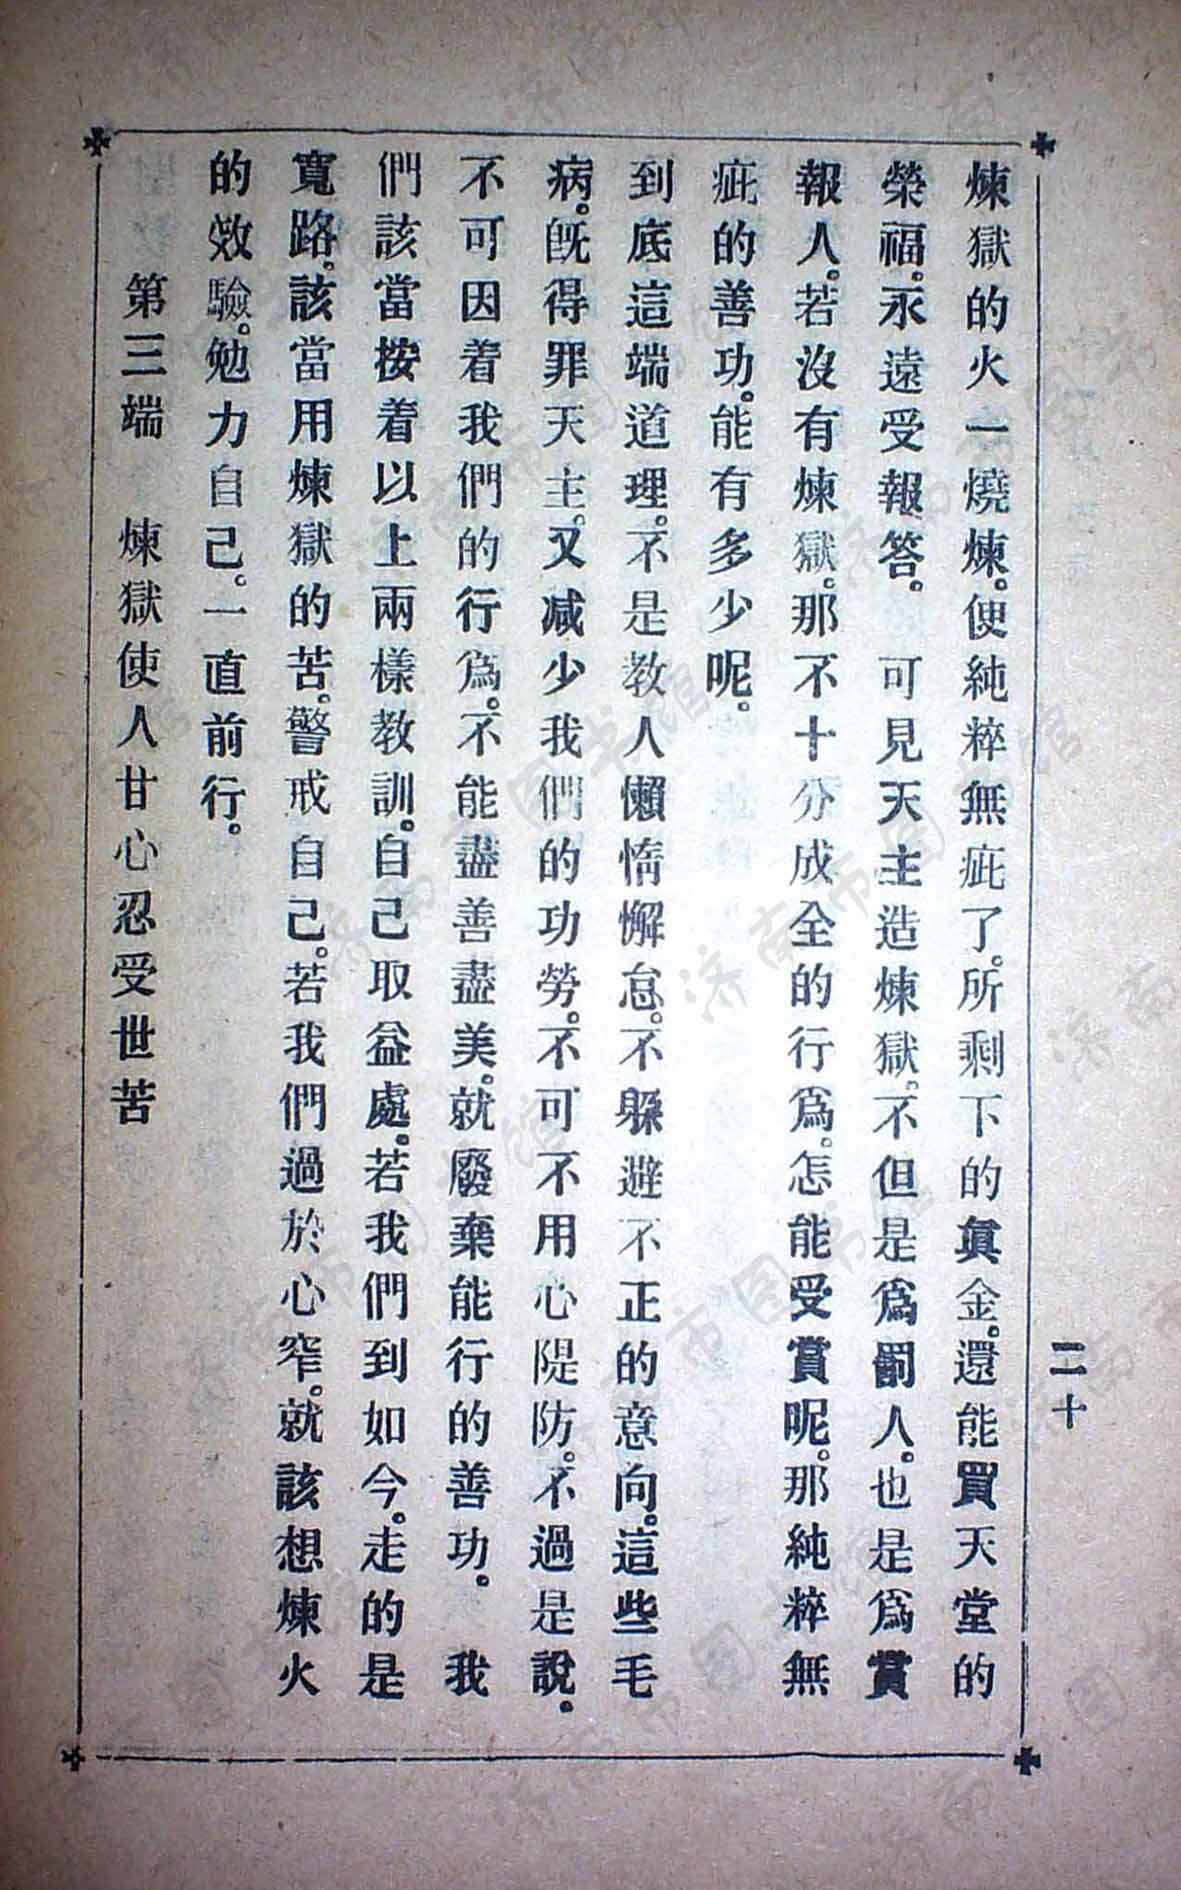 煉獄的火一燒煉。便純粹無疵了。所剩下的眞金。還能買天堂的
榮福。永遠受報答。　可見天主造煉獄。不但是爲罰人。也是爲賞
報人。若沒有煉獄。那不十分成全的行爲。怎能受賞呢。那純粹無
疵的善功。能有多少呢。
到底這端道理。不是教人懶惰懈怠。不躲避不正的意向。這些毛
病。既得罪天主。又减少我們的功勞。不可不用心隄防。不過是說。
不可因着我們的行爲。不能盡善盡美。就廢棄能行的善功。　我
們該當按着以上兩樣教訓。自己取益處。若我們到如今。走的是
寬路。該當用煉獄的苦。警戒自己。若我們過於心窄。就該想煉火
的效驗。勉力自己。一直前行。
第三端　煉獄使人甘心忍受世苦
二十
济南市图书馆